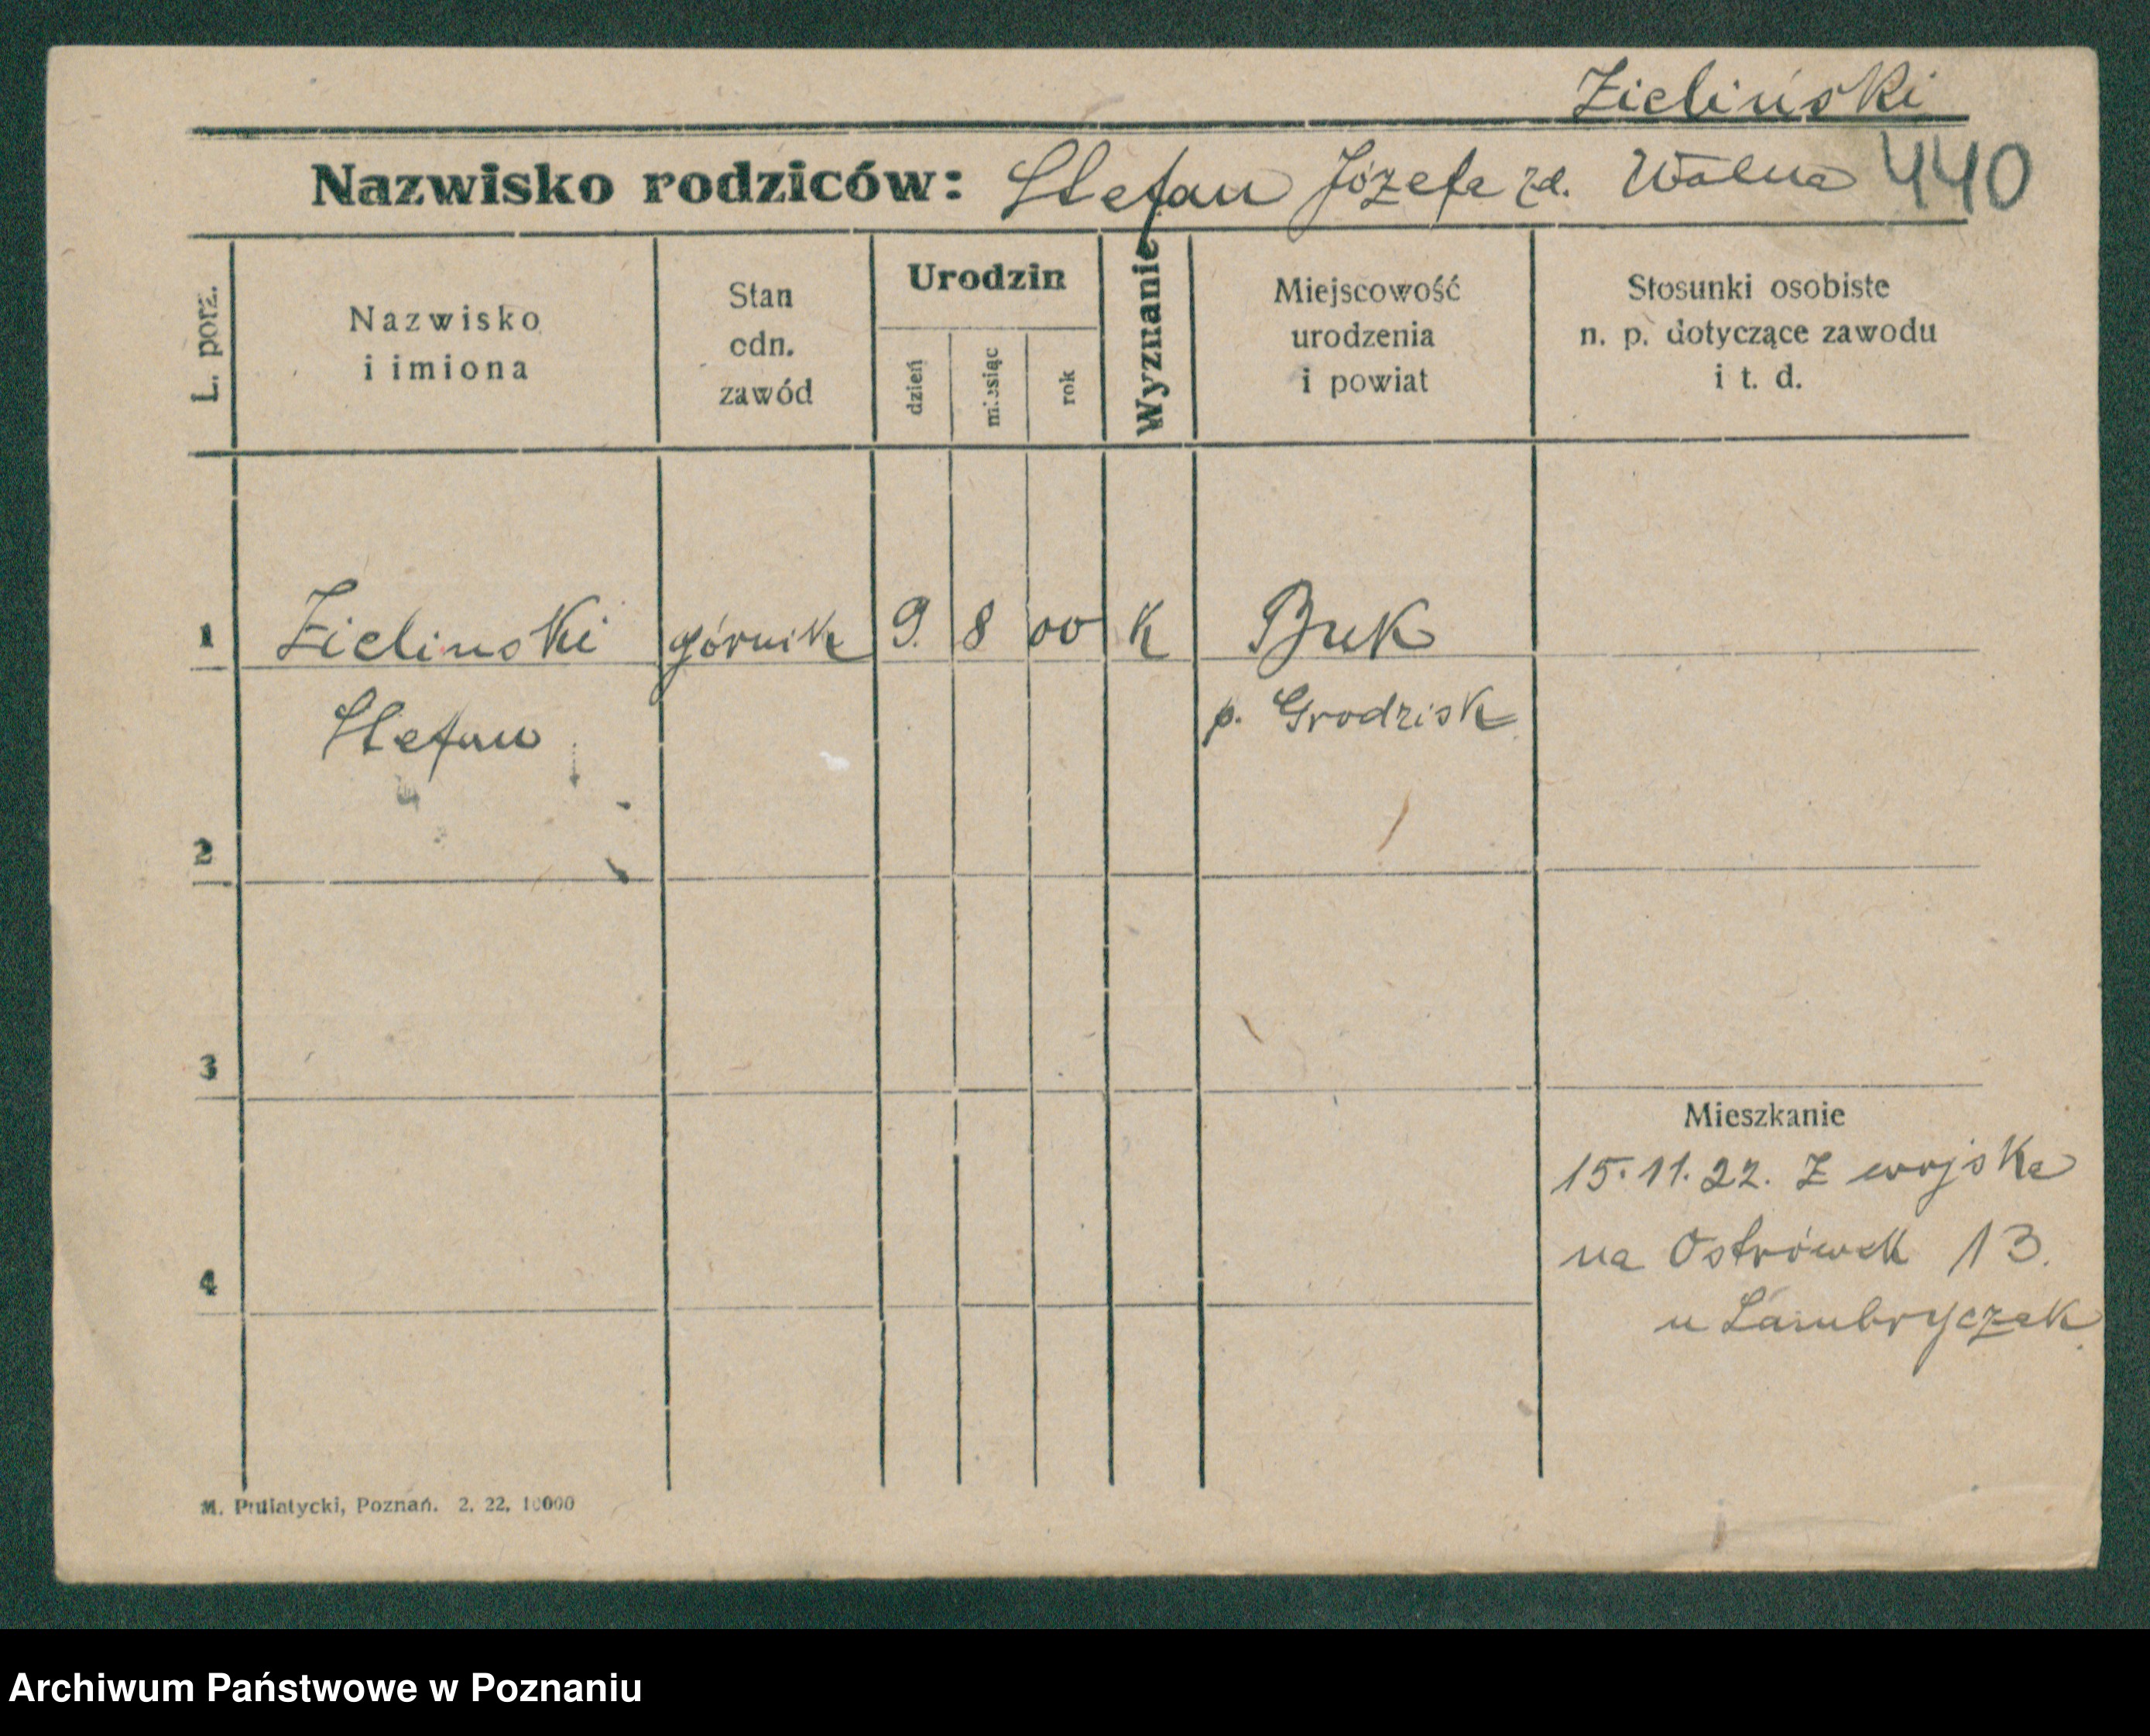 Zieliński
Nazwisko rodziców: Stefan Józefa zd. Wolna 440
L. porz.
Nazwisko
i imiona
Stan
odn.
zawód
Urodzin
dzień
miesiąc
rok
Wyznanie
Miejscowość
urodzenia
i powiat
Stosunki osobiste
n. p. dotyczące zawodu
i t. d.
1 Zielinski górnik 9. 8 00 k Buk
Stefan p. Grodzisk
2
3
Mieszkanie
15.11.22. Z wojska
na Ostrówek 13.
4
u Lambryczak
M. Putiatycki, Poznań. 2. 22, 10000
Archiwum Państwowe w Poznaniu